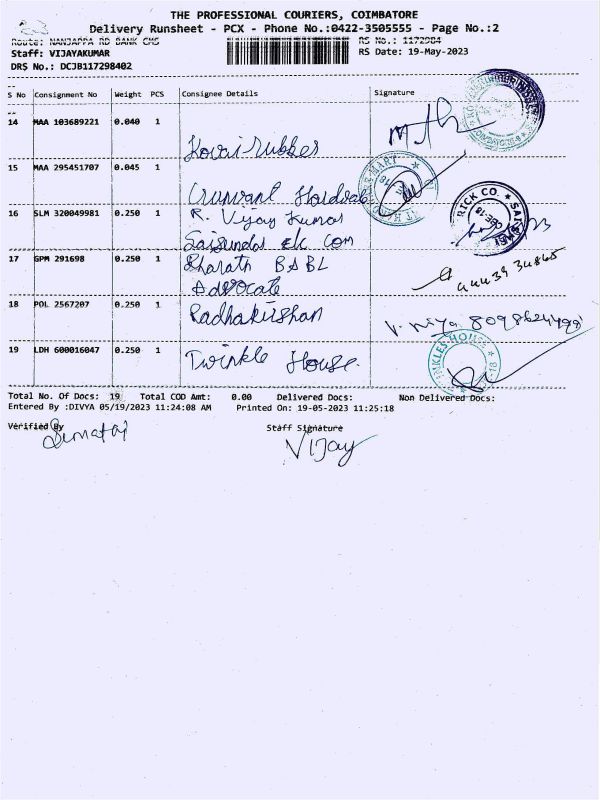 THE PROFESSIONAL COURIERS, COIMBATORE
Delivery Runsheet - PCX - Phone No.:0422-3505555 - Page No.:2
Route: NANJAPPA RD BANK CMS
RS No.: 1172984
Staff: VIJAYAKUMAR
RS Date: 19-May-2023
DRS No.: DCJB117298402
S No Consignment No Weight PCS Consignee Details Signature
14 MAA 103689221 0.040 1
Kovai rubber
15 MAA 295451707 0.045 1
16 SLM 320049981 0.250 1 R. Vijay Kumar
17 GPM 291698 0.250 1 Bharath BABL
Advocate
18 POL 2567207 0.250 1 Radhakrishan
19 LDH 600016047 0.250 1 Twinkle House.
Total No. Of Docs: 19 Total COD Amt: 0.00 Delivered Docs: Non Delivered Docs:
Entered By :DIVYA 05/19/2023 11:24:08 AM Printed On: 19-05-2023 11:25:18
Verified By
Staff Signature
Vijay